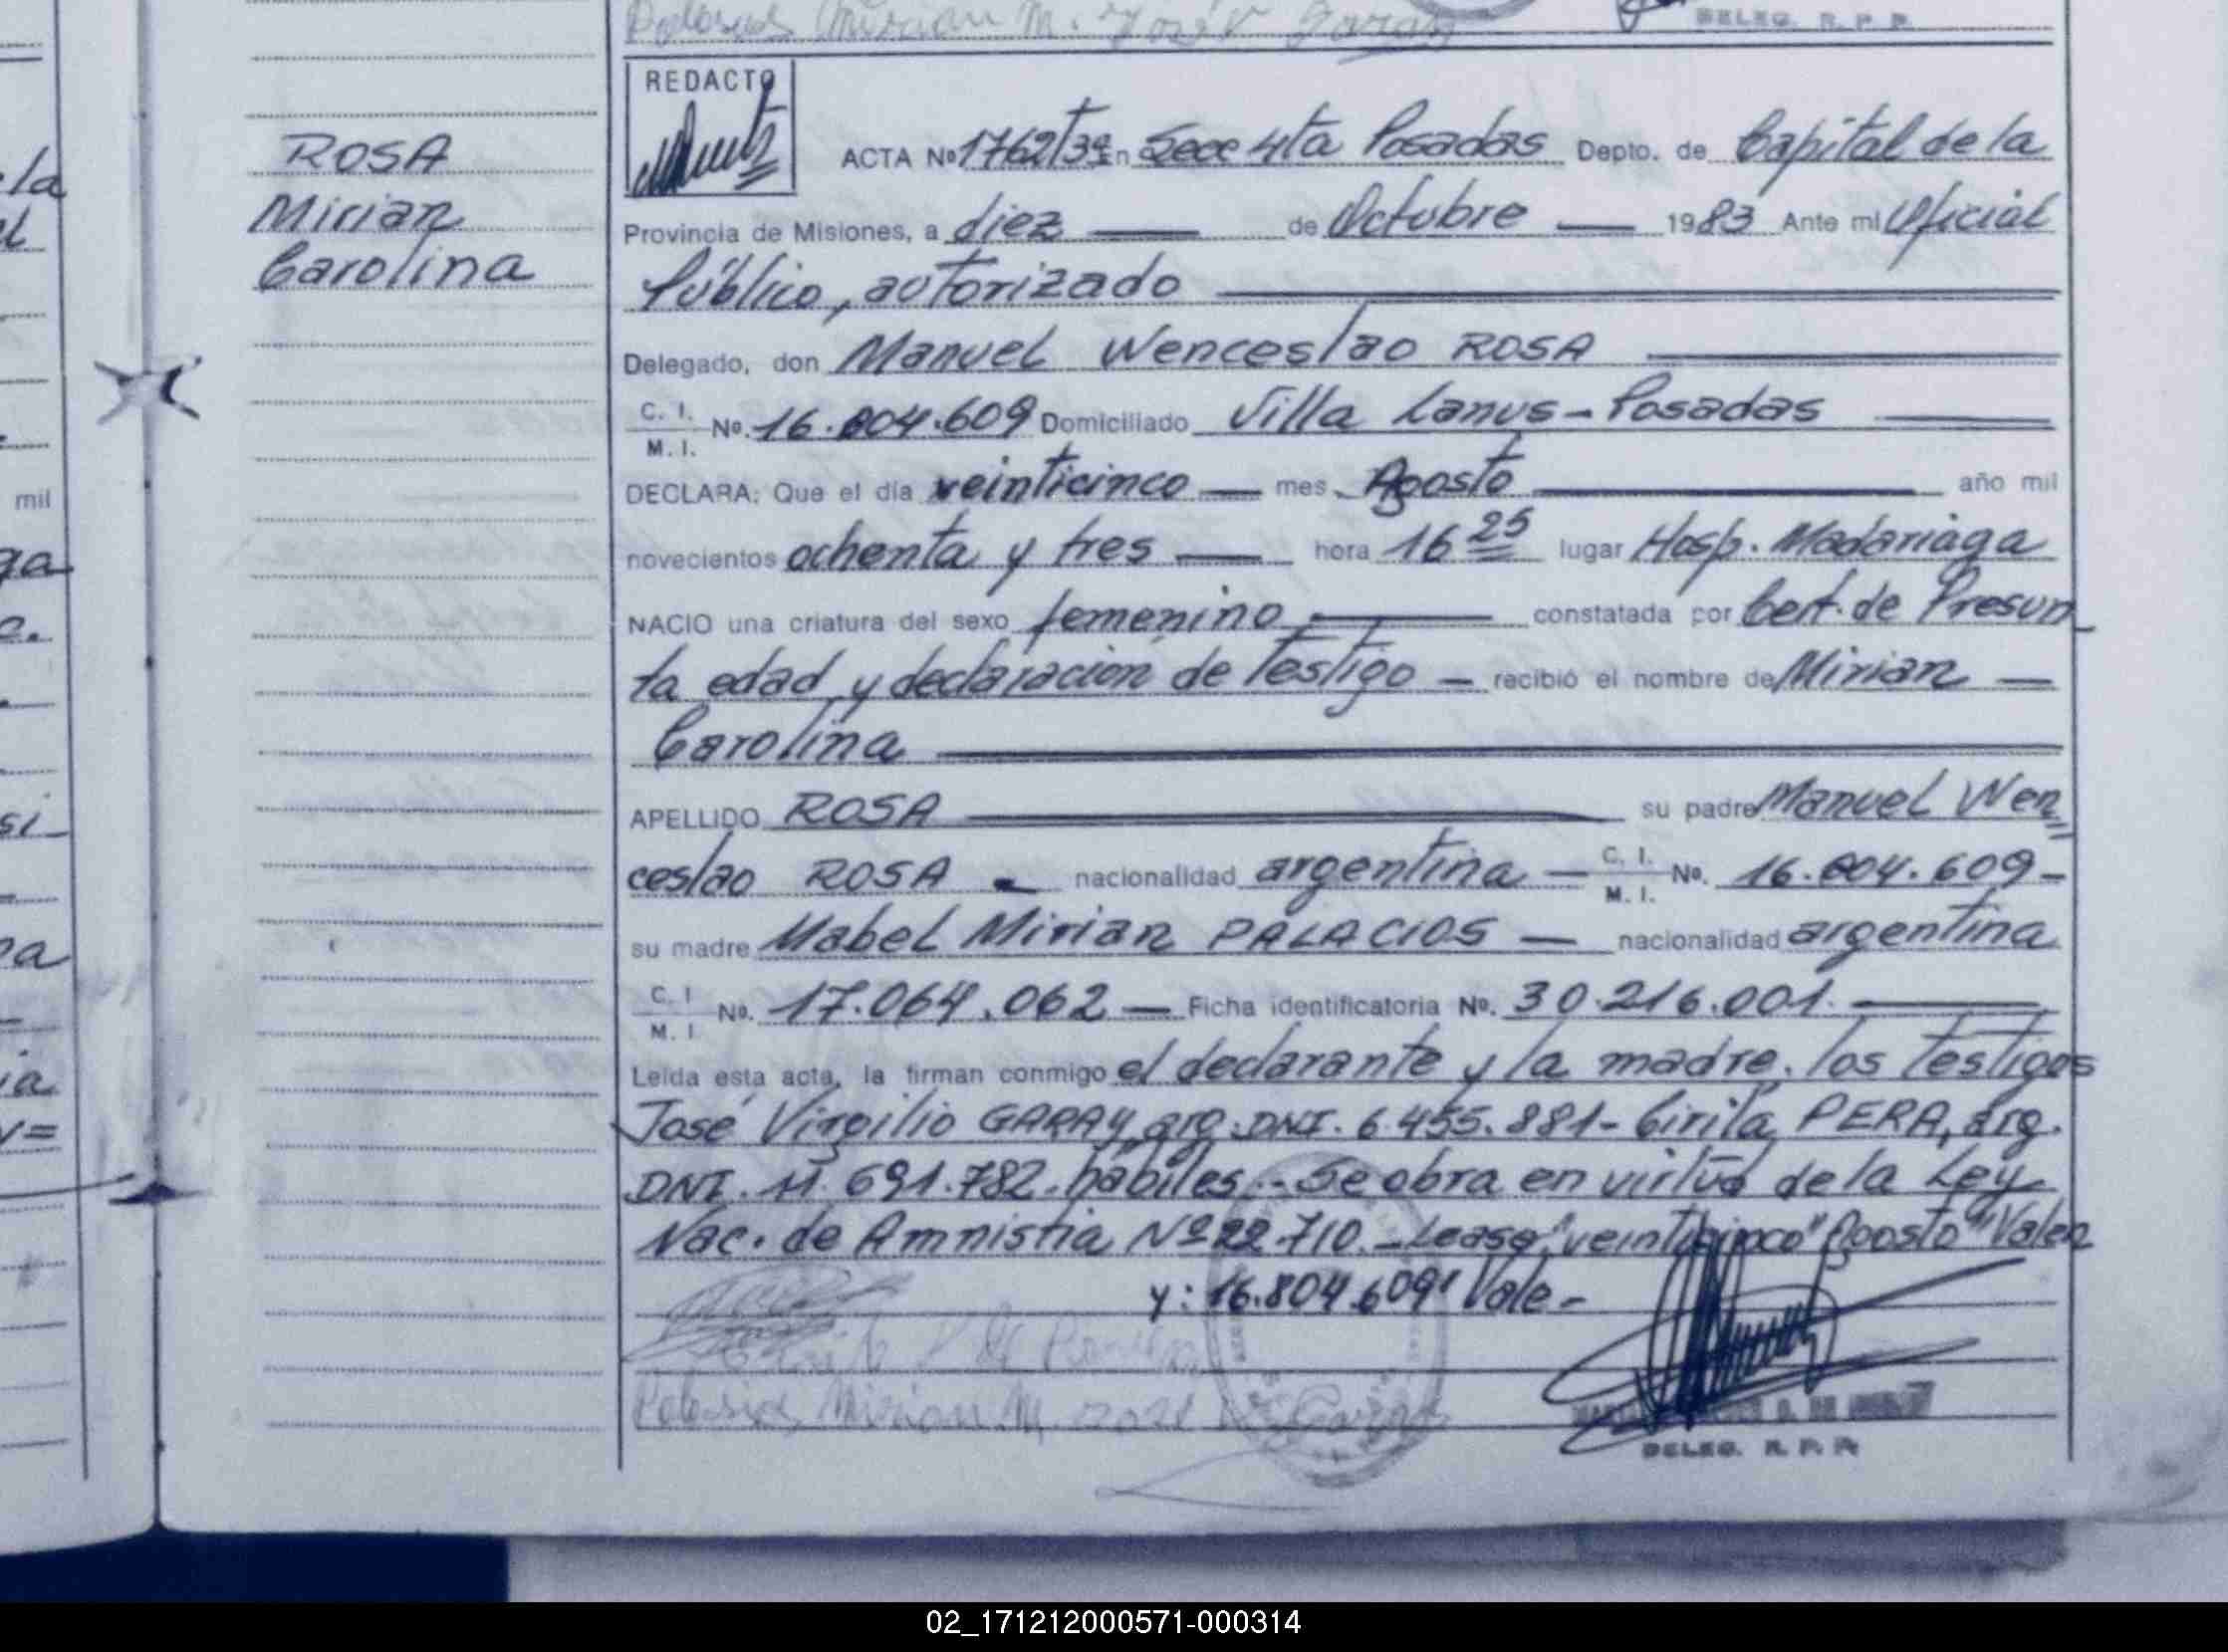 Mirian M. José V Garay
DELEG. R. P. P.
ROSA
Mirian
Carolina
REDACTO
ACTA Nº 1762 Tº 3º En Secc 4ta Posadas Depto. de Capital de la
Provincia de Misiones, a diez de Octubre 1983 Ante mi Oficial
Público, autorizado
Delegado, don Manuel Wenceslao ROSA
C. I.
M. I. Nº. 16.804.609 Domiciliado Villa Lanus - Posadas
DECLARA: Que el día veinticinco mes Agosto año mil
novecientos ochenta y tres hora 16 25 lugar Hosp. Madariaga
NACIO una criatura del sexo femenino constatada por Cert. de Presun
ta edad y declaración de Testigo - recibió el nombre de Mirian
Carolina
APELLIDO ROSA su padre Manuel Wen
ceslao ROSA - nacionalidad argentina C. I. M. I. Nº. 16.804.609-
su madre Mabel Mirian PALACIOS - nacionalidad argentina
C. I
M. I Nº. 17.064.062 - Ficha identificatoria Nº. 30.216.001.
Leída esta acta, la firman conmigo el declarante y la madre. los Testigos
José Virgilio GARAY, arg. DNI. 6.455.881- Cirila PERA, arg.
DNI. 11.691.782. hábiles.- Se obra en virtud de la Ley
Nac. de Amnistía Nº 22.710.- Lease "veinticinco" Agosto" Valen
y: 16.804.609" Vale-
Mirian M. José V Garay
DELEG. R. P. P.
la
mil
ga
si
ia
02_171212000571-000314